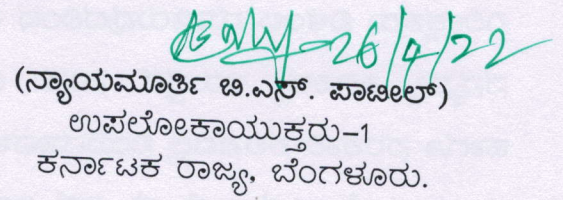 26/4/22
(ನ್ಯಾಯಮೂರ್ತಿ ಬಿ.ಎಸ್. ಪಾಟೀಲ್)
ಉಪಲೋಕಾಯುಕ್ತರು-1
ಕರ್ನಾಟಕ ರಾಜ್ಯ, ಬೆಂಗಳೂರು.